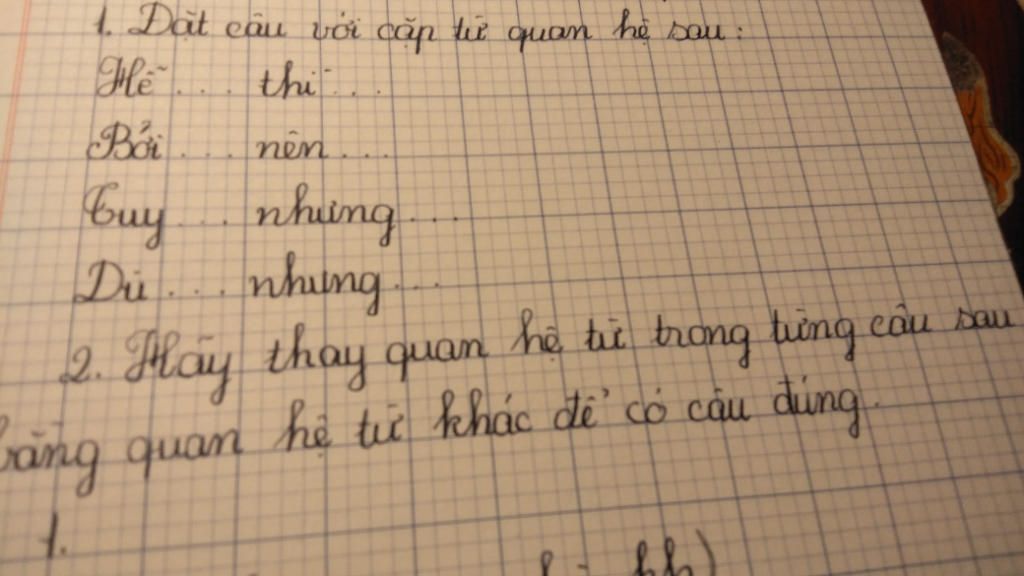 1. Đặt câu với cặp từ quan hệ sau:
Hễ ... thì ...
Bởi ... nên ...
Tuy ... nhưng ...
Dù ... nhưng ...
2. Hãy thay quan hệ từ trong từng câu sau
bằng quan hệ từ khác để có câu đúng.
1.